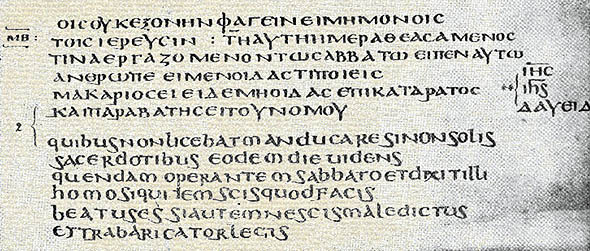 ΟΙϹΟΥΚΕΞΟΝΗΝΦΑΓΕΙΝΕΙΜΗΜΟΝΟΙϹ
ΜΒ: ΤΟΙϹΙΕΡΕΥϹΙΝ : ΤΗΑΥΤΗΗΜΕΡΑΘΕΑϹΑΜΕΝΟϹ
ΤΙΝΑΕΡΓΑΖΟΜΕΝΟΝΤΩϹΑΒΒΑΤΩΕΙΠΕΝΑΥΤΩ
ΑΝΘΡΩΠΕΕΙΜΕΝΟΙΔΑϹΤΙΠΟΙΕΙϹ
ΜΑΚΑΡΙΟϹΕΙΕΙΔΕΜΗΟΙΔΑϹΕΠΙΚΑΤΑΡΑΤΟϹ
ΚΑΙΠΑΡΑΒΑΤΗϹΕΙΤΟΥΝΟΜΟΥ
ΙΗϹ
ihs
ΔΑΥΕΙΔ
2
quibusnonlicebatmanducaresinonsolis
sacerdotibus eodem die uidens
quendam operantem sabbato etdixitilli
homosiquidemscisquodfacis
beatuses siautemnescismaledictus
ettrabaricatorlegis